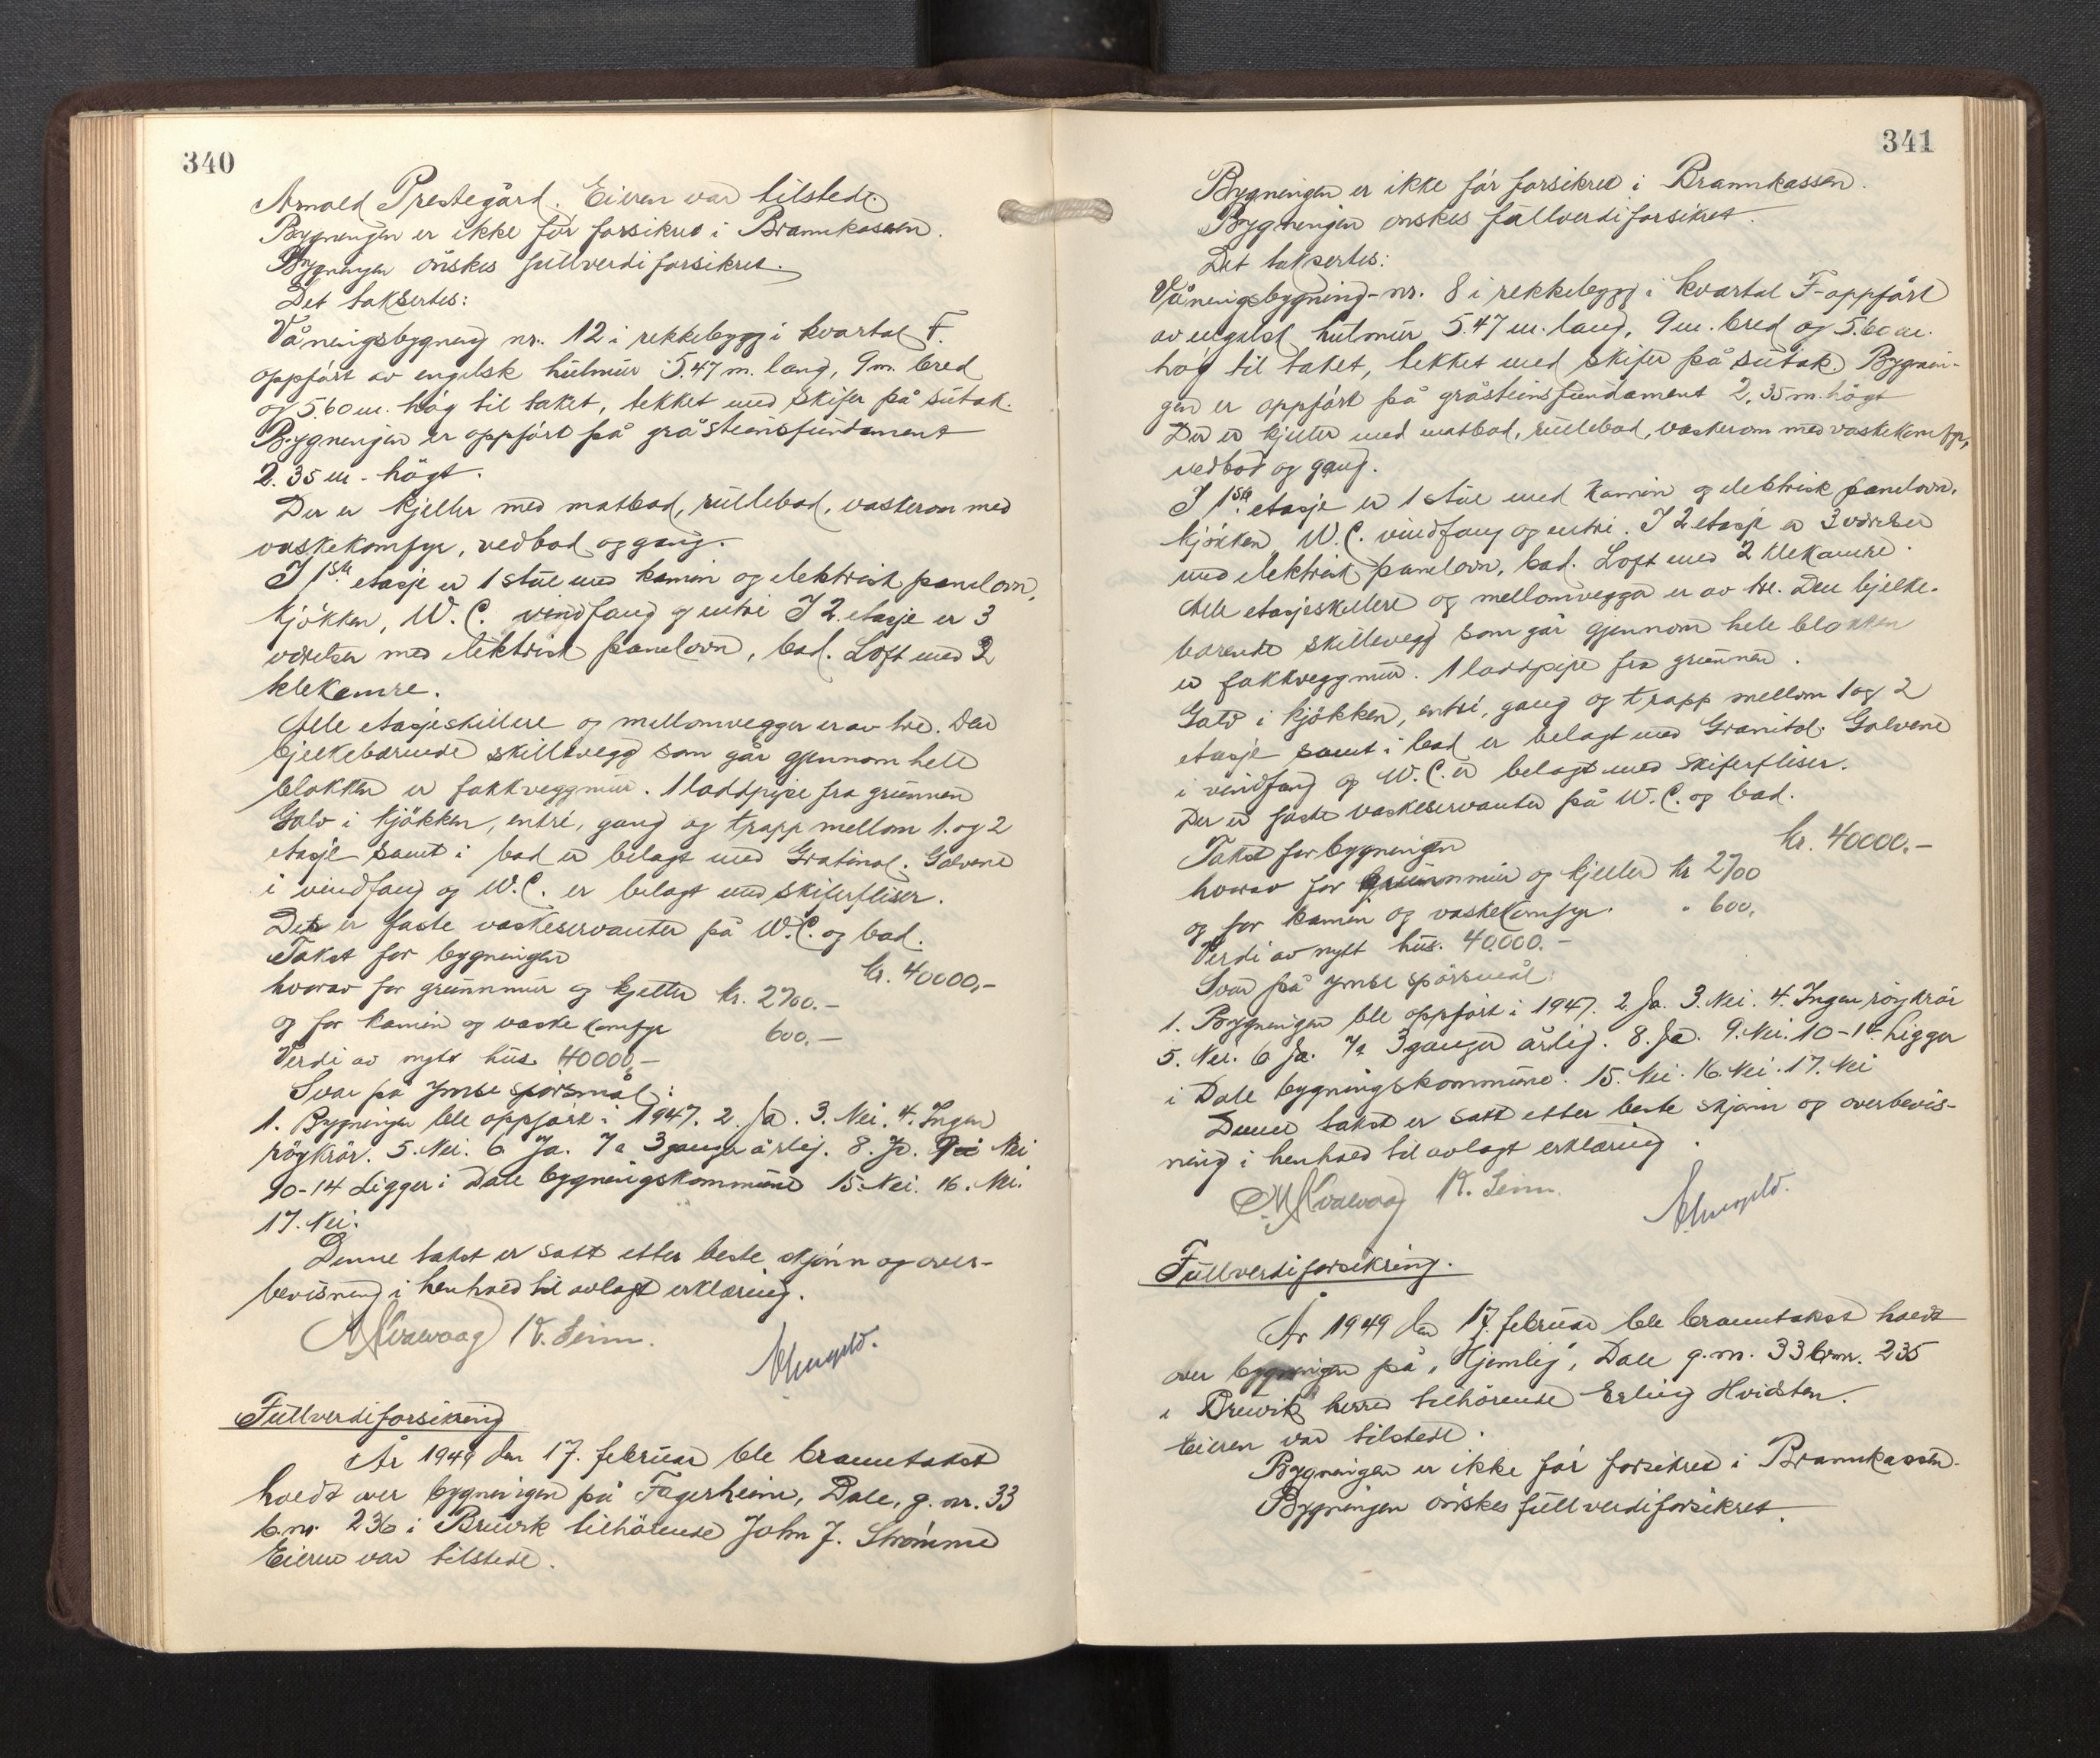 340
Arnold Prestegård. Eieren var tilstede.
Bygningen er ikke før forsikret i Brannkassen.
Bygningen ønskes fullverdiforsikret.
Det taksertes:
Våningsbygning nr. 12 i rekkebygg i kvartal F.
oppført av engelsk hulmur 5.47 m. lang, 9 m. bred
og 5.60 m. høg til taket, tekket med skifer på sutak.
Bygningen er oppført på gråsteinsfundament
2.35 m. högt.
Der er kjeller med matbod, rullebod, vaskerom med
vaskekomfyr, vedbod og gang.
I 1ste etasje er 1 stue med kamin og elektrisk panelovn,
kjøkken, W.C. vindfang og entre I 2. etasje er 3
værelser med elektrisk panelovn, bad. Loft med 2
klekamre.
Alle etasjeskillere og mellomvegger er av tre. Den
bjelkebærende skillevegg som går gjennom hele
blokken er fakkveggmur. 1 loddpipe fra grunnen
Golv i kjøkken, entre, gang og trapp mellom 1. og 2
etasje samt i bad er belagt med Gratinol. Golvene
i vindfang og W.C. er belagt med skiferfliser.
Det er faste vaskeservanter på W.C. og bad.
Takst for bygningen kr. 40000,-
hvorav for grunnmur og kjeller kr. 2700.-
og for kamin og vaskekomfyr 600.-
Verdi av nytt hus 40000,-
Svar på ymse spørsmål:
1. Bygningen ble oppført i 1947. 2. Ja. 3. Nei. 4. Ingen
røykrør. 5. Nei. 6 Ja. 7a 3 ganger årlig. 8. Ja. 9. Nei
10-14 Ligger i Dale bygningskommune 15. Nei. 16. Nei.
17. Nei.
Denne takst er satt etter beste skjønn og over-
bevisning i henhold til avlagt erklæring.
K. Seim.
Fullverdiforsikring
År 1949 den 17. februar ble branntakst
holdt over bygningen på Fagerheim, Dale, g.nr. 33
b.nr. 236 i Bruvik tilhørende John J. Strømme
Eieren var tilstede.
341
Bygningen er ikke før forsikret i Brannkassen.
Bygningen ønskes fullverdiforsikret.
Det taksertes:
Våningsbygning nr. 8 i rekkebygg i kvartal F oppført
av engelsk hulmur 5.47 m. lang, 9 m. bred og 5.60 m.
høg til taket, tekket med skifer på sutak. Bygnin-
gen er oppført på gråsteinsfundament 2.35 m. högt
Der er kjeller med matbod, rullebod, vaskerom med vaskekomfyr,
vedbod og gang.
I 1ste etasje er 1 stue med kamin og elektrisk panelovn.
kjøkken, W.C. vindfang og entre. I 2 etasje er 3 værelser
med elektrisk panelovn, bad. Loft med 2 klekamre.
Alle etasjeskillere og mellomvegger er av tre. Den bjelke-
bærende skillevegg som går gjennom hele blokken
er fakkveggmur. 1 loddpipe fra grunnen.
Golv i kjøkken, entre, gang og trapp mellom 1 og 2
etasje samt i bad er belagt med Granitol. Golvene
i vindfang og W.C. er belagt med skiferfliser.
Der er faste vaskeservanter på W.C. og bad.
Takst for bygningen kr. 40000.-
hvorav for grunnmur og kjeller kr 2700
og for kamin og vaskekomfyr. " 600.
Verdi av nytt hus. 40.000.-
Svar på ymse spørsmål
1. Bygningen ble oppført i 1947. 2. Ja. 3. Nei. 4. Ingen røykrør
5. Nei. 6 Ja. 7a 3 ganger årlig. 8. Ja. 9. Nei. 10-14 Ligger
i Dale bygningskommune. 15. Nei. 16. Nei. 17. Nei
Denne takst er satt etter beste skjønn og overbevis-
ning i henhold til avlagt erklæring.
K. Seim.
Fullverdiforsikring.
År 1949 den 17. februar ble branntakst holdt
over bygningen på "Hjemly", Dale g.nr. 33 b.nr. 235
i Bruvik herred tilhørende Erling Hvidsten.
Eieren var tilstede.
Bygningen er ikke før forsikret i Brannkassen.
Bygningen ønskes fullverdiforsikret.